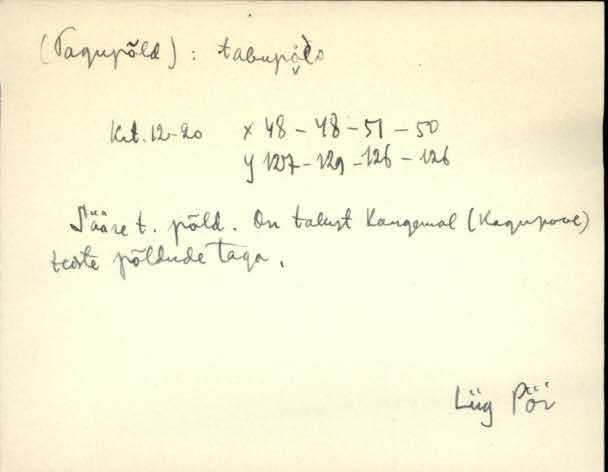 (Tagupõld) : tabupõl̀s
Krt. 12-20 x 48 - 48 - 51 - 50
y 127 - 129 - 126 - 126
Sääre t. põld. On talust kaugemal (kagupool)
teiste põldude taga.
Liig Pöi